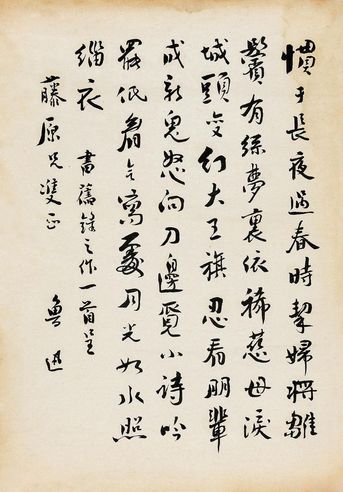 慣于長夜過春時挈婦將雛
鬢有絲夢裏依稀慈母淚
城頭變幻大王旗忍看朋輩
成新鬼怒向刀邊覓小詩吟
罷低眉無寫處月光如水照
緇衣 書舊之作一首呈
藤原兄雙正 魯迅